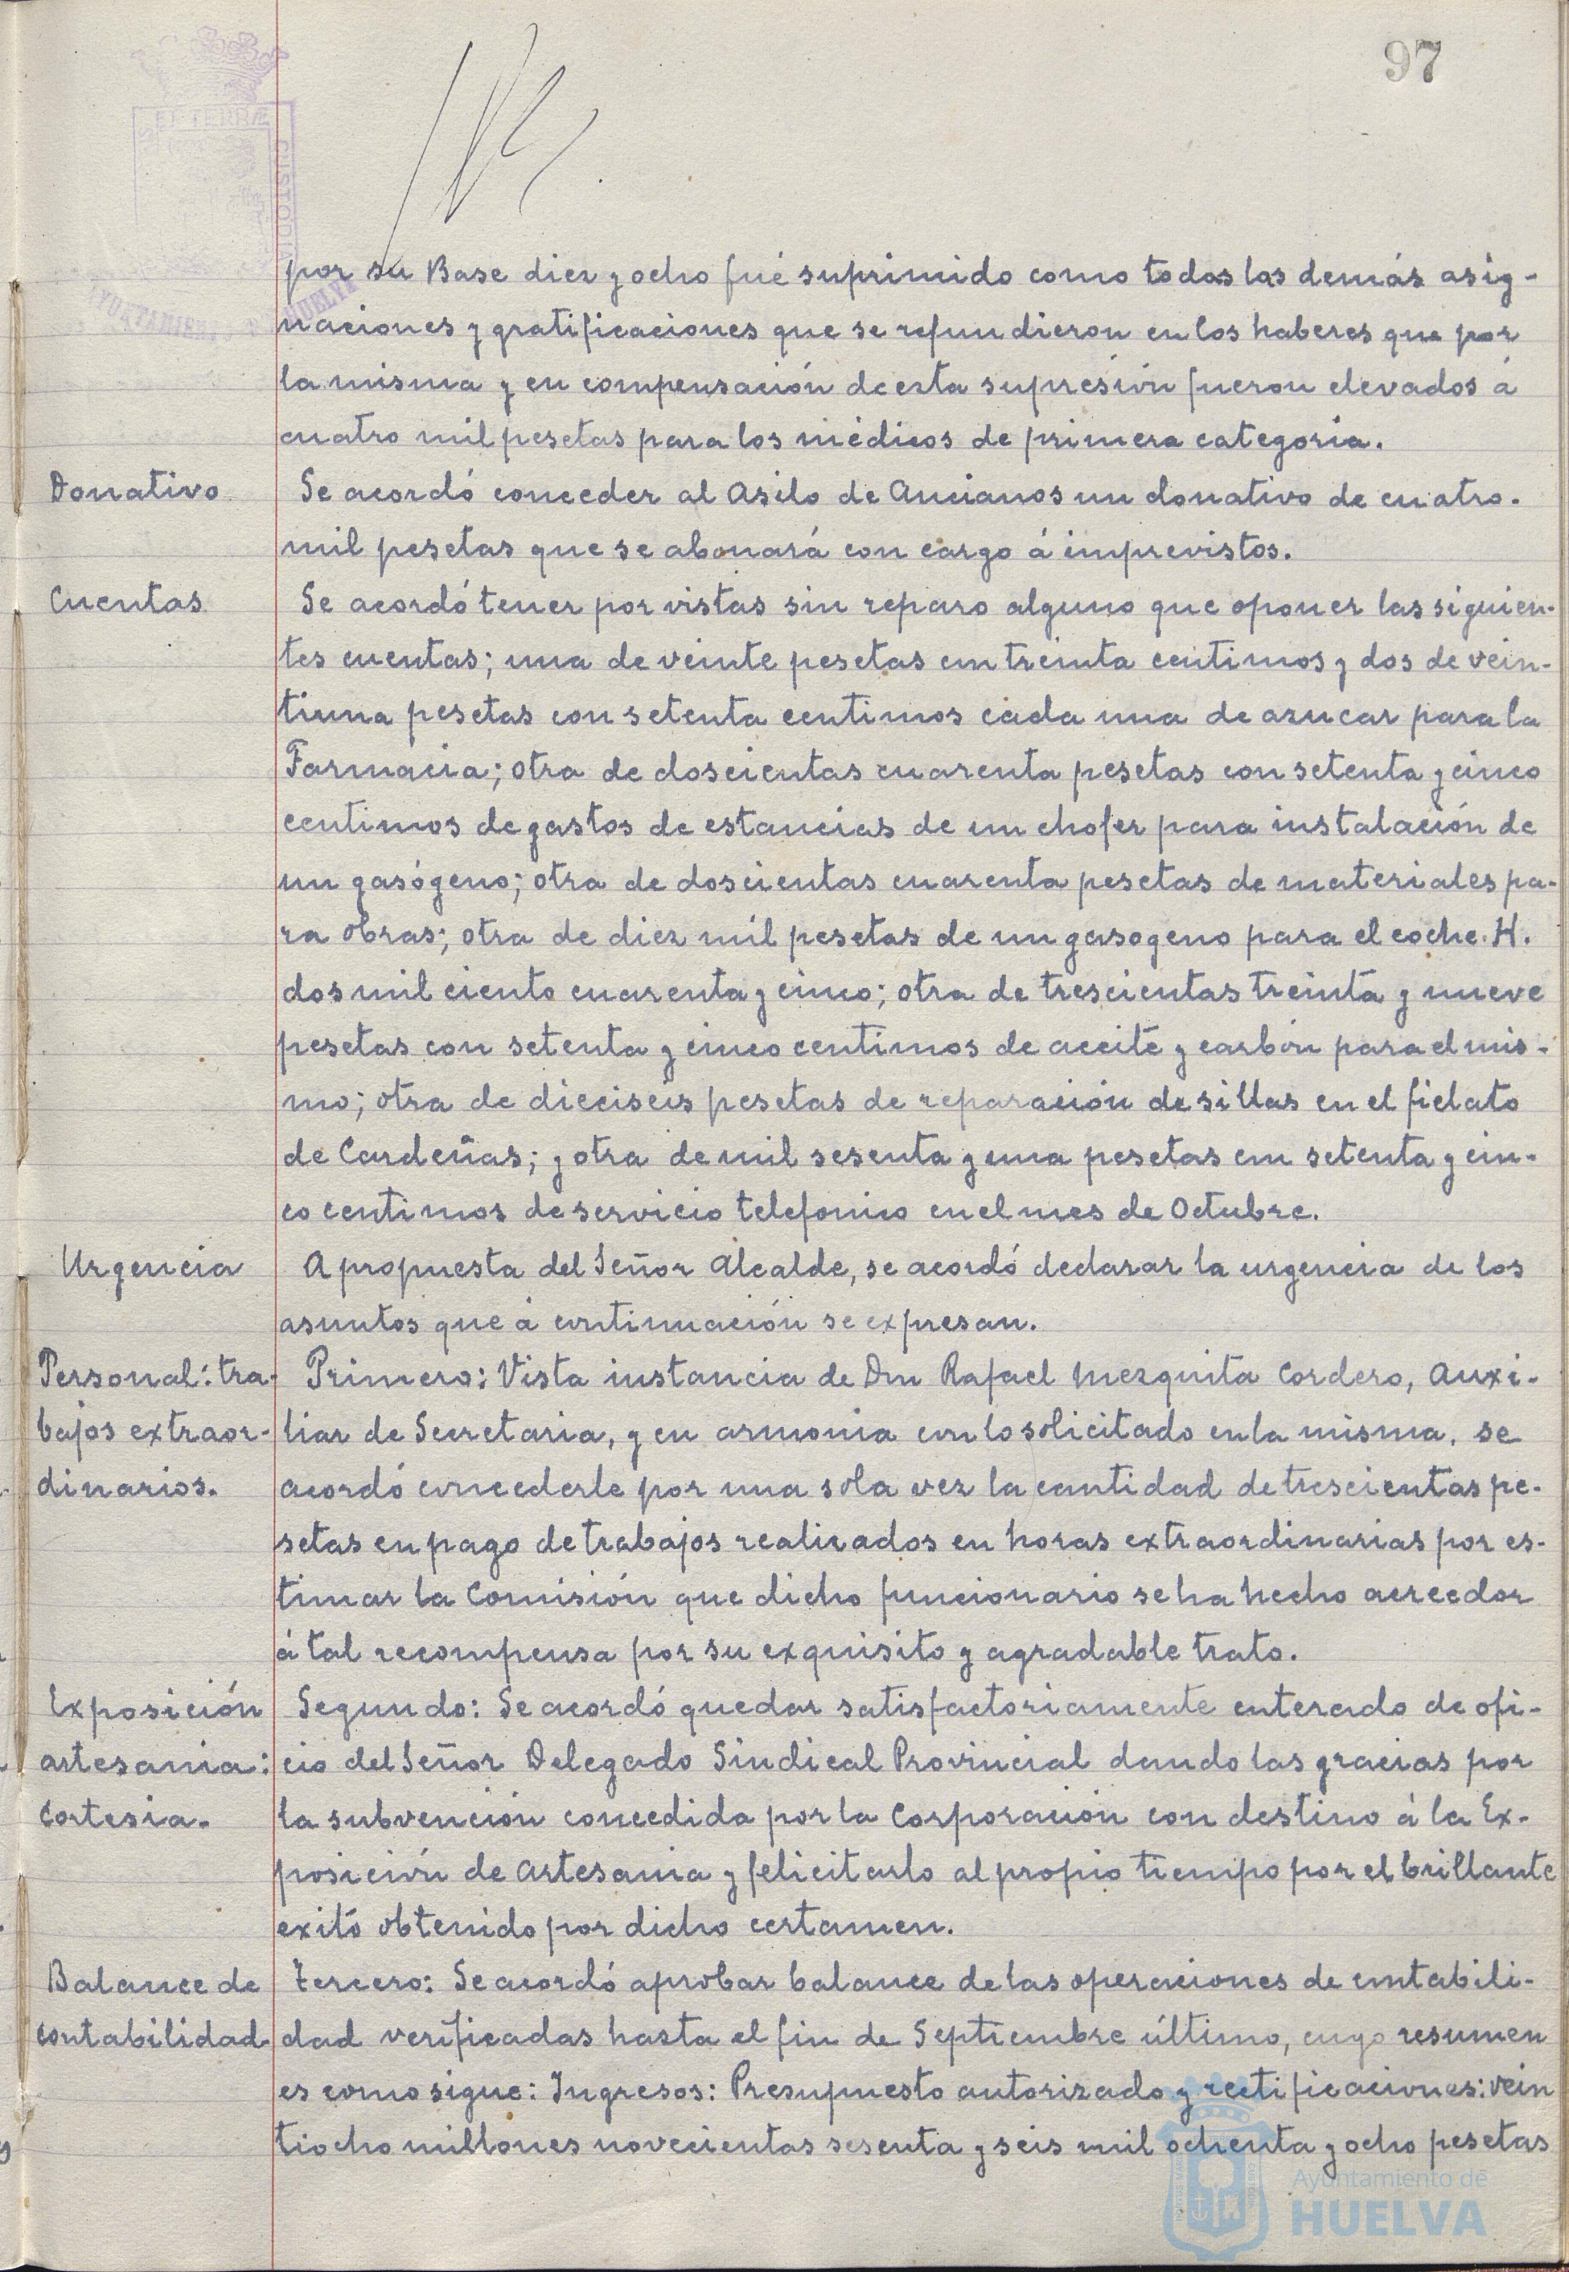 97
ET TERRÆ
CUSTODI
AYUNTAMIENTO DE HUELVA
por su Base diez y ocho fué suprimido como todas las demás asig-
naciones y gratificaciones que se refundieron en los haberes que por
la misma y en compensación de esta supresión fueron elevados á
cuatro mil pesetas para los médicos de primera categoría.
Donativo
Se acordó conceder al Asilo de Ancianos un donativo de cuatro-
mil pesetas que se abonará con cargo á imprevistos.
Cuentas
Se acordó tener por vistas sin reparo alguno que oponer las siguien-
tes cuentas; una de veinte pesetas con treinta centimos y dos de vein-
tiuna pesetas con setenta centimos cada una de azucar para la
Farmacia; otra de doscientas cuarenta pesetas con setenta y cinco
centimos de gastos de estancias de un chofer para instalación de
un gasógeno; otra de doscientas cuarenta pesetas de materiales pa-
ra obras; otra de diez mil pesetas de un gasogeno para el coche H.
dos mil ciento cuarenta y cinco; otra de trescientas treinta y nueve
pesetas con setenta y cinco centimos de aceite y carbón para el mis-
mo; otra de dieciseis pesetas de reparación de sillas en el fielato
de Cardeñas; y otra de mil sesenta y una pesetas con setenta y cin-
co centimos de servicio telefonico en el mes de Octubre.
Urgencia
A propuesta del Señor Alcalde, se acordó declarar la urgencia de los
asuntos que á continuación se expresan.
Personal: tra-
bajos extraor-
dinarios.
Primero: Vista instancia de Don Rafael Mezquita Cordero, Auxi-
liar de Secretaria, y en armonia con lo solicitado en la misma, se
acordó concederle por una sola vez la cantidad de trescientas pe-
setas en pago de trabajos realizados en horas extraordinarias por es-
timar la Comisión que dicho funcionario se ha hecho acreedor
á tal recompensa por su exquisito y agradable trato.
Exposición
artesania:
Cortesia.
Segundo: Se acordó quedar satisfactoriamente enterado de ofi-
cio del Señor Delegado Sindical Provincial dando las gracias por
la subvención concedida por la Corporación con destino á la Ex-
posición de Artesania y felicitarlo al propio tiempo por el brillante
exito obtenido por dicho certamen.
Balance de
contabilidad
tercero: Se acordó aprobar balance de las operaciones de contabili-
dad verificadas hasta el fin de Septiembre último, cuyo resumen
es como sigue: Ingresos: Presupuesto autorizado y rectificaciones: vein
tiocho millones novecientas sesenta y seis mil ochenta y ocho pesetas
Ayuntamiento de
HUELVA